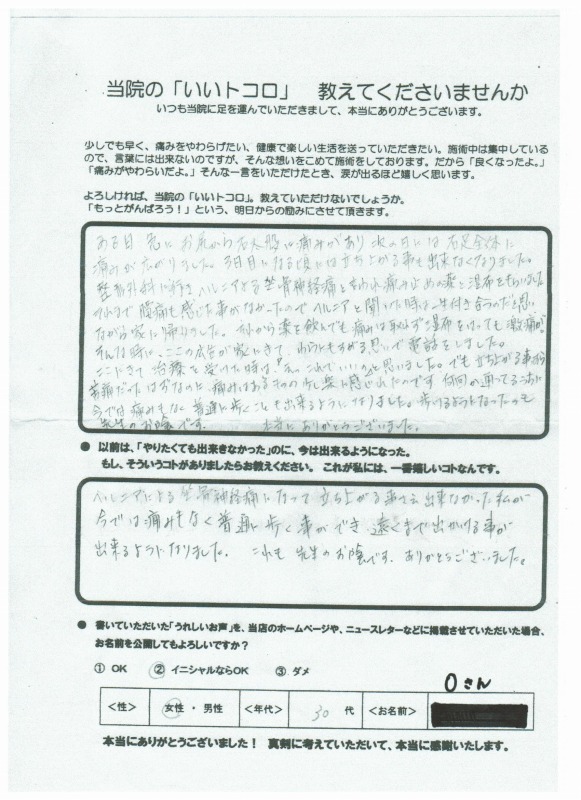 当院の「いいトコロ」　教えてくださいませんか
いつも当院に足を運んでいただきまして、本当にありがとうございます。
少しでも早く、痛みをやわらげたい、健康で楽しい生活を送っていただきたい。施術中は集中している
ので、言葉には出来ないのですが、そんな想いをこめて施術をしております。だから「良くなったよ。」
「痛みがやわらいだよ。」そんな一言をいただけたとき、涙が出るほど嬉しく思います。
よろしければ、当院の「いいトコロ」。教えていただけないでしょうか。
「もっとがんばろう！」という、明日からの励みにさせて頂きます。
ある日 急に お尻から右太股に痛みがあり 次の日には 右足全体に
痛みが広がりました。3日目になる頃には立ち上がる事も出来なくなりました。
整形外科に行き ヘルニアによる坐骨神経痛と言われ 痛み止めの薬と湿布をもらいました
今まで 腰痛も感じた事がなかったのでヘルニアと聞いた時は一生付き合うのだと思い
ながら家に帰りました。それから薬を飲んでも痛みは取れず湿布をはっても激痛が
そんな時に、ここの広告が家にきて、わらにもすがる思いで 電話をしました。
ここにきて 治療を 受けた時は と思いました。でも 立ち上がる事
苦痛だったはずなのに 痛みはあるものの少し楽に感じれたのです 何回か通ってるうちに
今では 痛みもなく 普通に歩くことも出来るようになりました。歩けるようになったのも
先生のお陰です。 本当に ありがとうございました。
● 以前は、「やりたくても出来きなかった」のに、今は出来るようになった。
もし、そういうコトがありましたらお教えください。 これが私には、一番嬉しいコトなんです。
ヘルニアによる 坐骨神経痛になって 立ち上がる事さえ 出来なかった私が
今では痛みもなく 普通に 歩く事ができ 遠くまで出かける事が
出来るようになりました。 これも 先生のお陰です。ありがとうございました。
● 書いていただいた「うれしいお声」を、当店のホームページや、ニュースレターなどに掲載させていただいた場合、
お名前を公開してもよろしいですか？
① OK　② イニシャルならOK　③ ダメ
Oさん
＜性＞ 女性 ・ 男性 ＜年代＞ 30 代 ＜お名前＞
本当にありがとうございました！ 真剣に考えていただいて、本当に感謝いたします。